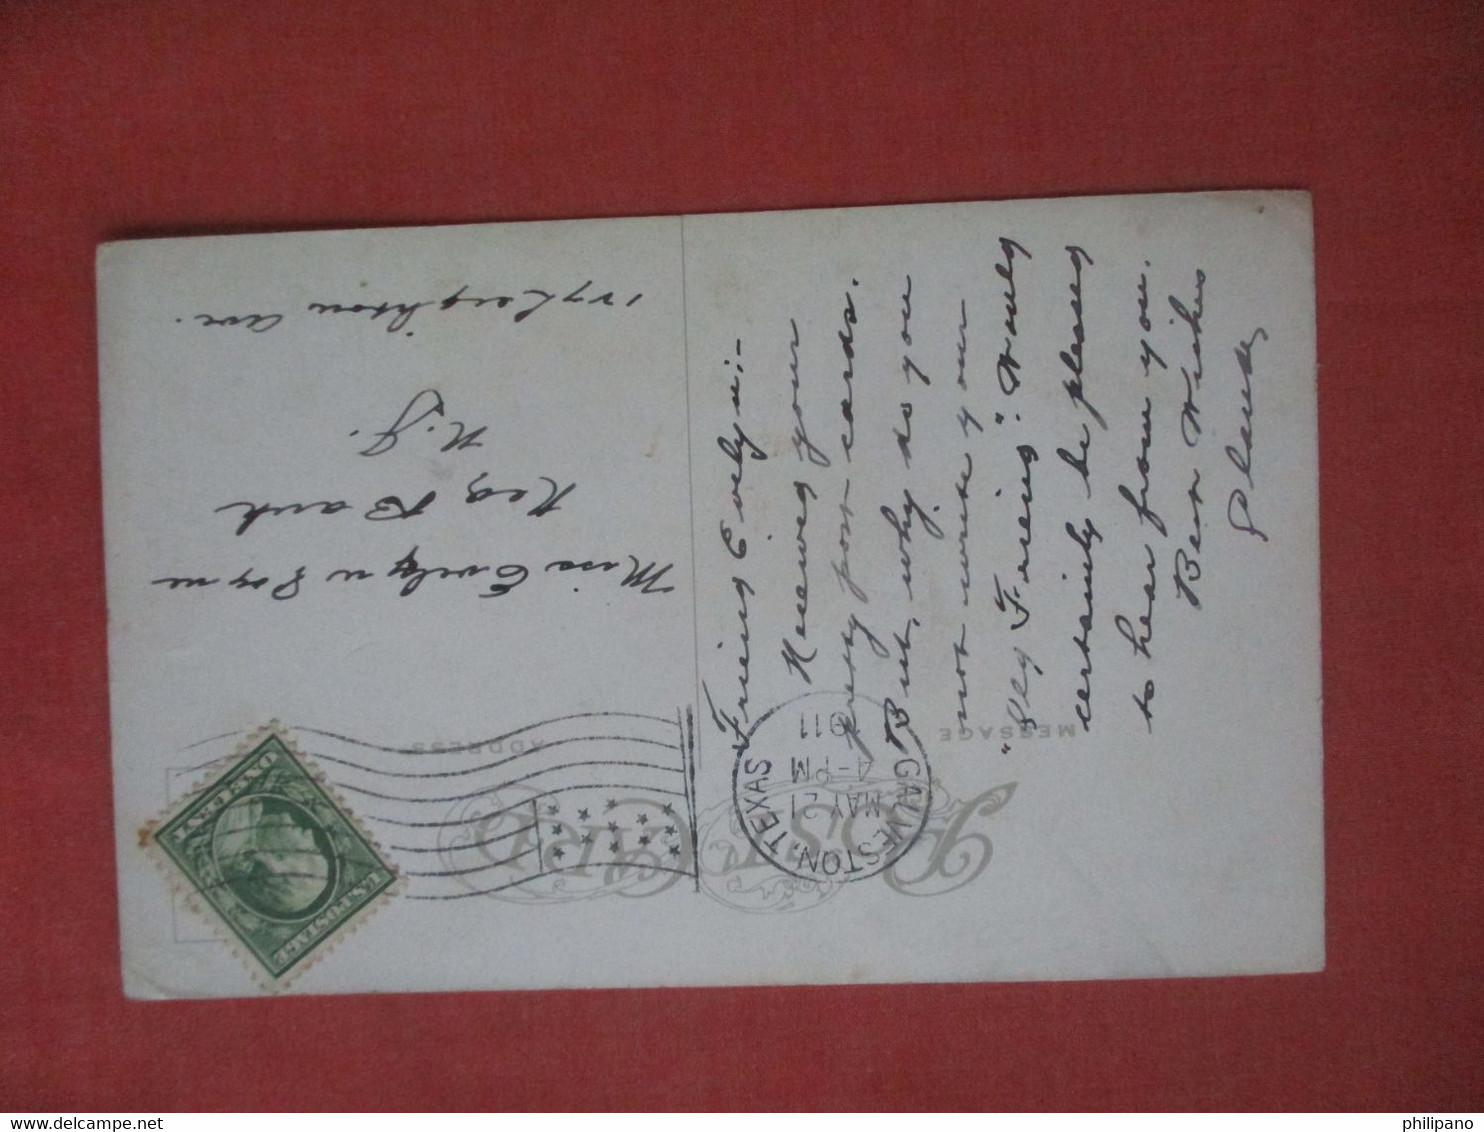 POST CARD
MESSAGE
ADDRESS
GALVESTON, TEXAS
MAY 21
4-PM
1911
U.S. POSTAGE
ONE CENT
Friend Evelyn:-
Received your
pretty post cards.
But, why do you
not write your
"Sly Friend". Would
certainly be pleased
to hear from you.
Best Wishes
Miss Evelyn
Red Bank
N.J.
Leighton Ave.
www.delcampe.net
philipano